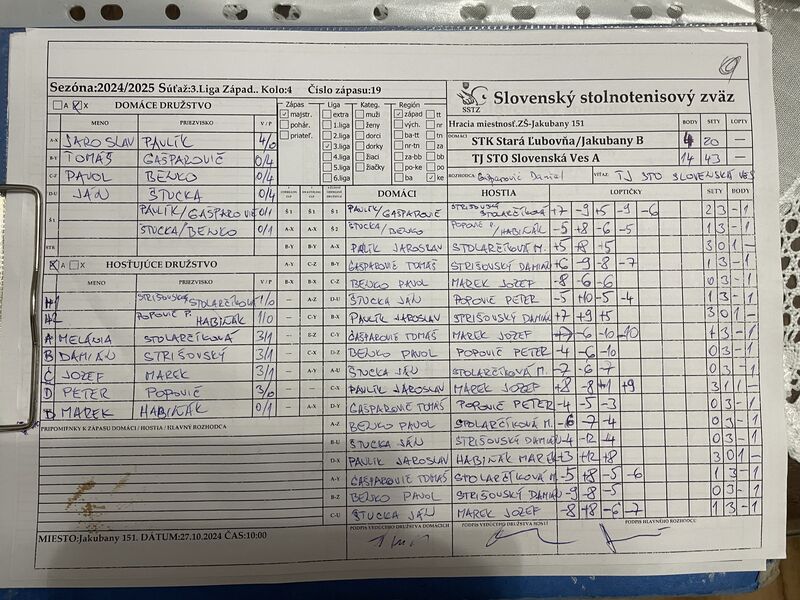 Sezóna:2024/2025 Súťaž:3.Liga Západ.. Kolo:4 Číslo zápasu:19
Slovenský stolnotenisový zväz
SSTZ
A X DOMÁCE DRUŽSTVO
MENO PRIEZVISKO V / P
A-X JAROSLAV PAVLÍK 4/0
B-Y TOMÁŠ GAŠPAROVIČ 0/4
C-Z PAVOL BENKO 0/4
D-U JÁN ŠTUCKA 0/4
PAVLÍK/GAŠPAROVIČ 0/1
ŠTUCKA/BENKO 0/1
Zápas Liga Kateg. Región
majstr. extra muži západ tt
pohár. 1.liga ženy vých. nr
priateľ. 2.liga dorci ba-tt tn
3.liga dorky nr-tn za
4.liga žiaci za-bb bb
5.liga žiačky po-ke po
6.liga ba ke
Hracia miestnosť.ZŠ-Jakubany 151 BODY SETY LOPTY
DOMÁCI STK Stará Ľubovňa/Jakubany B 4 20 –
TJ STO Slovenská Ves A 14 43 –
ROZHODCA: Gašparovič Daniel VÍŤAZ: TJ STO SLOVENSKÁ VES
DOMÁCI HOSTIA LOPTIČKY SETY BODY
Š 1 Š 1 Š 1 PAVLÍK/GAŠPAROVIČ STRIŠOVSKÝ STOLARČÍKOVÁ +7 -9 +5 -9 -6 2 3 - 1
A-X A-X Š 2 ŠTUCKA/BENKO POPOVIČ P/HABINÁK -5 +8 -6 -5 1 3 - 1
B-Y B-Y A-X PAVLÍK JAROSLAV STOLARČÍKOVÁ M. +5 +8 +5 3 0 1 -
A-Y C-Z B-Y GAŠPAROVIČ TOMÁŠ STRIŠOVSKÝ DAMIÁN +6 -9 -8 -7 1 3 - 1
B-X B-X C-Z BENKO PAVOL MAREK JOZEF -8 -6 -6 0 3 - 1
A-Z D-U ŠTUCKA JÁN POPOVIČ PETER -5 +10 -5 -4 1 3 - 1
C-Y B-X PAVLÍK JAROSLAV STRIŠOVSKÝ DAMIÁN +7 +9 +5 3 0 1 -
GAŠPAROVIČ TOMÁŠ MAREK JOZEF -6 -10 -10 3 - 1
C-X D-Z BENKO PAVOL POPOVIČ PETER -4 -6 -10 0 3 - 1
A-Y A-U ŠTUCKA JÁN STOLARČÍKOVÁ M. -7 -6 -7 0 3 - 1
C-X PAVLÍK JAROSLAV MAREK JOZEF +8 -8 +9 3 1 1 -
A-X D-Y GAŠPAROVIČ TOMÁŠ POPOVIČ PETER -4 -5 -3 0 3 - 1
A-Z BENKO PAVOL STOLARČÍKOVÁ M. -6 -7 -4 0 3 - 1
B-U ŠTUCKA JÁN STRIŠOVSKÝ DAMIÁN -4 -12 -4 0 3 - 1
D-X PAVLÍK JAROSLAV HABINÁK MAREK +3 +12 +8 3 0 1 -
A-Y GAŠPAROVIČ TOMÁŠ STOLARČÍKOVÁ M. -5 +8 -5 -6 1 3 - 1
B-Z BENKO PAVOL STRIŠOVSKÝ DAMIÁN -9 -8 -5 0 3 - 1
C-U ŠTUCKA JÁN MAREK JOZEF -8 +8 -6 -7 1 3 - 1
A X HOSŤUJÚCE DRUŽSTVO
MENO PRIEZVISKO V / P
STRIŠOVSKÝ STOLARČÍKOVÁ 1/0
POPOVIČ P. HABINÁK 1/0
A MELÁNIA STOLARČÍKOVÁ 3/1
B DAMIÁN STRIŠOVSKÝ 3/1
C JOZEF MAREK 3/1
D PETER POPOVIČ 3/0
MAREK HABINÁK 0/1
PRIPOMIENKY K ZÁPASU DOMÁCI / HOSTIA / HLAVNÝ ROZHODCA
PODPIS VEDÚCEHO DRUŽSTVA DOMÁCICH PODPIS VEDÚCEHO DRUŽSTVA HOSTÍ PODPIS HLAVNÉHO ROZHODCU
MIESTO:Jakubany 151. DÁTUM:27.10.2024 ČAS:10:00